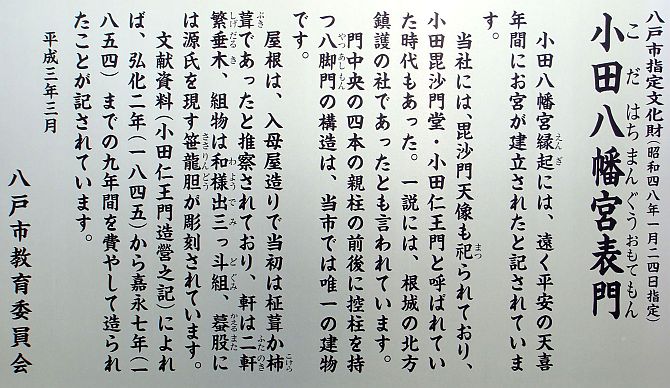 八戸市指定文化財(昭和四八年一月二四日指定)
小田八幡宮表門
こだはちまんぐうおもてもん
小田八幡宮縁起には、遠く平安の天喜
えんぎ
年間にお宮が建立されたと記されていま
す。
当社には、毘沙門天像も祀られており、
まつ
小田毘沙門堂・小田仁王門と呼ばれてい
た時代もあった。一説には、根城の北方
鎮護の社であったとも言われています。
門中央の四本の親柱の前後に控柱を持
つ八脚門の構造は、当市では唯一の建物
やつあしもん
です。
屋根は、入母屋造りで当初は柾葺か柿
こけら
葺であったと推察されており、軒は二軒
ぶき
ふたのき
繁垂木、組物は和様出三っ斗組、蟇股に
しげだるき
わようでみ
どぐみ
かえるまた
は源氏を現す笹龍胆が彫刻されています。
ささりんどう
文献資料(小田仁王門造営之記)によれ
ば、弘化二年(一八四五)から嘉永七年(一
八五四)までの九年間を費やして造られ
たことが記されています。
平成三年三月
八戸市教育委員会